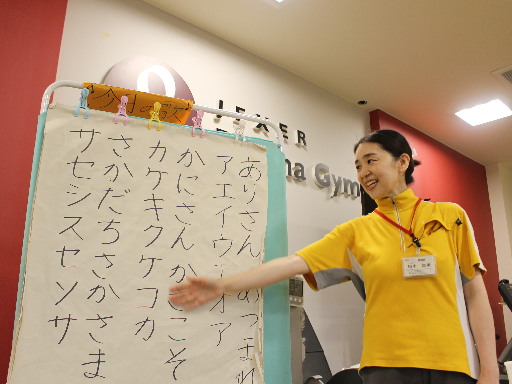 JEXER
na Gym
ありさん つまれ
アエイウ オア
かにさんか こそ
カケキクケコカ
さかだちさかさま
サセシスセソサ